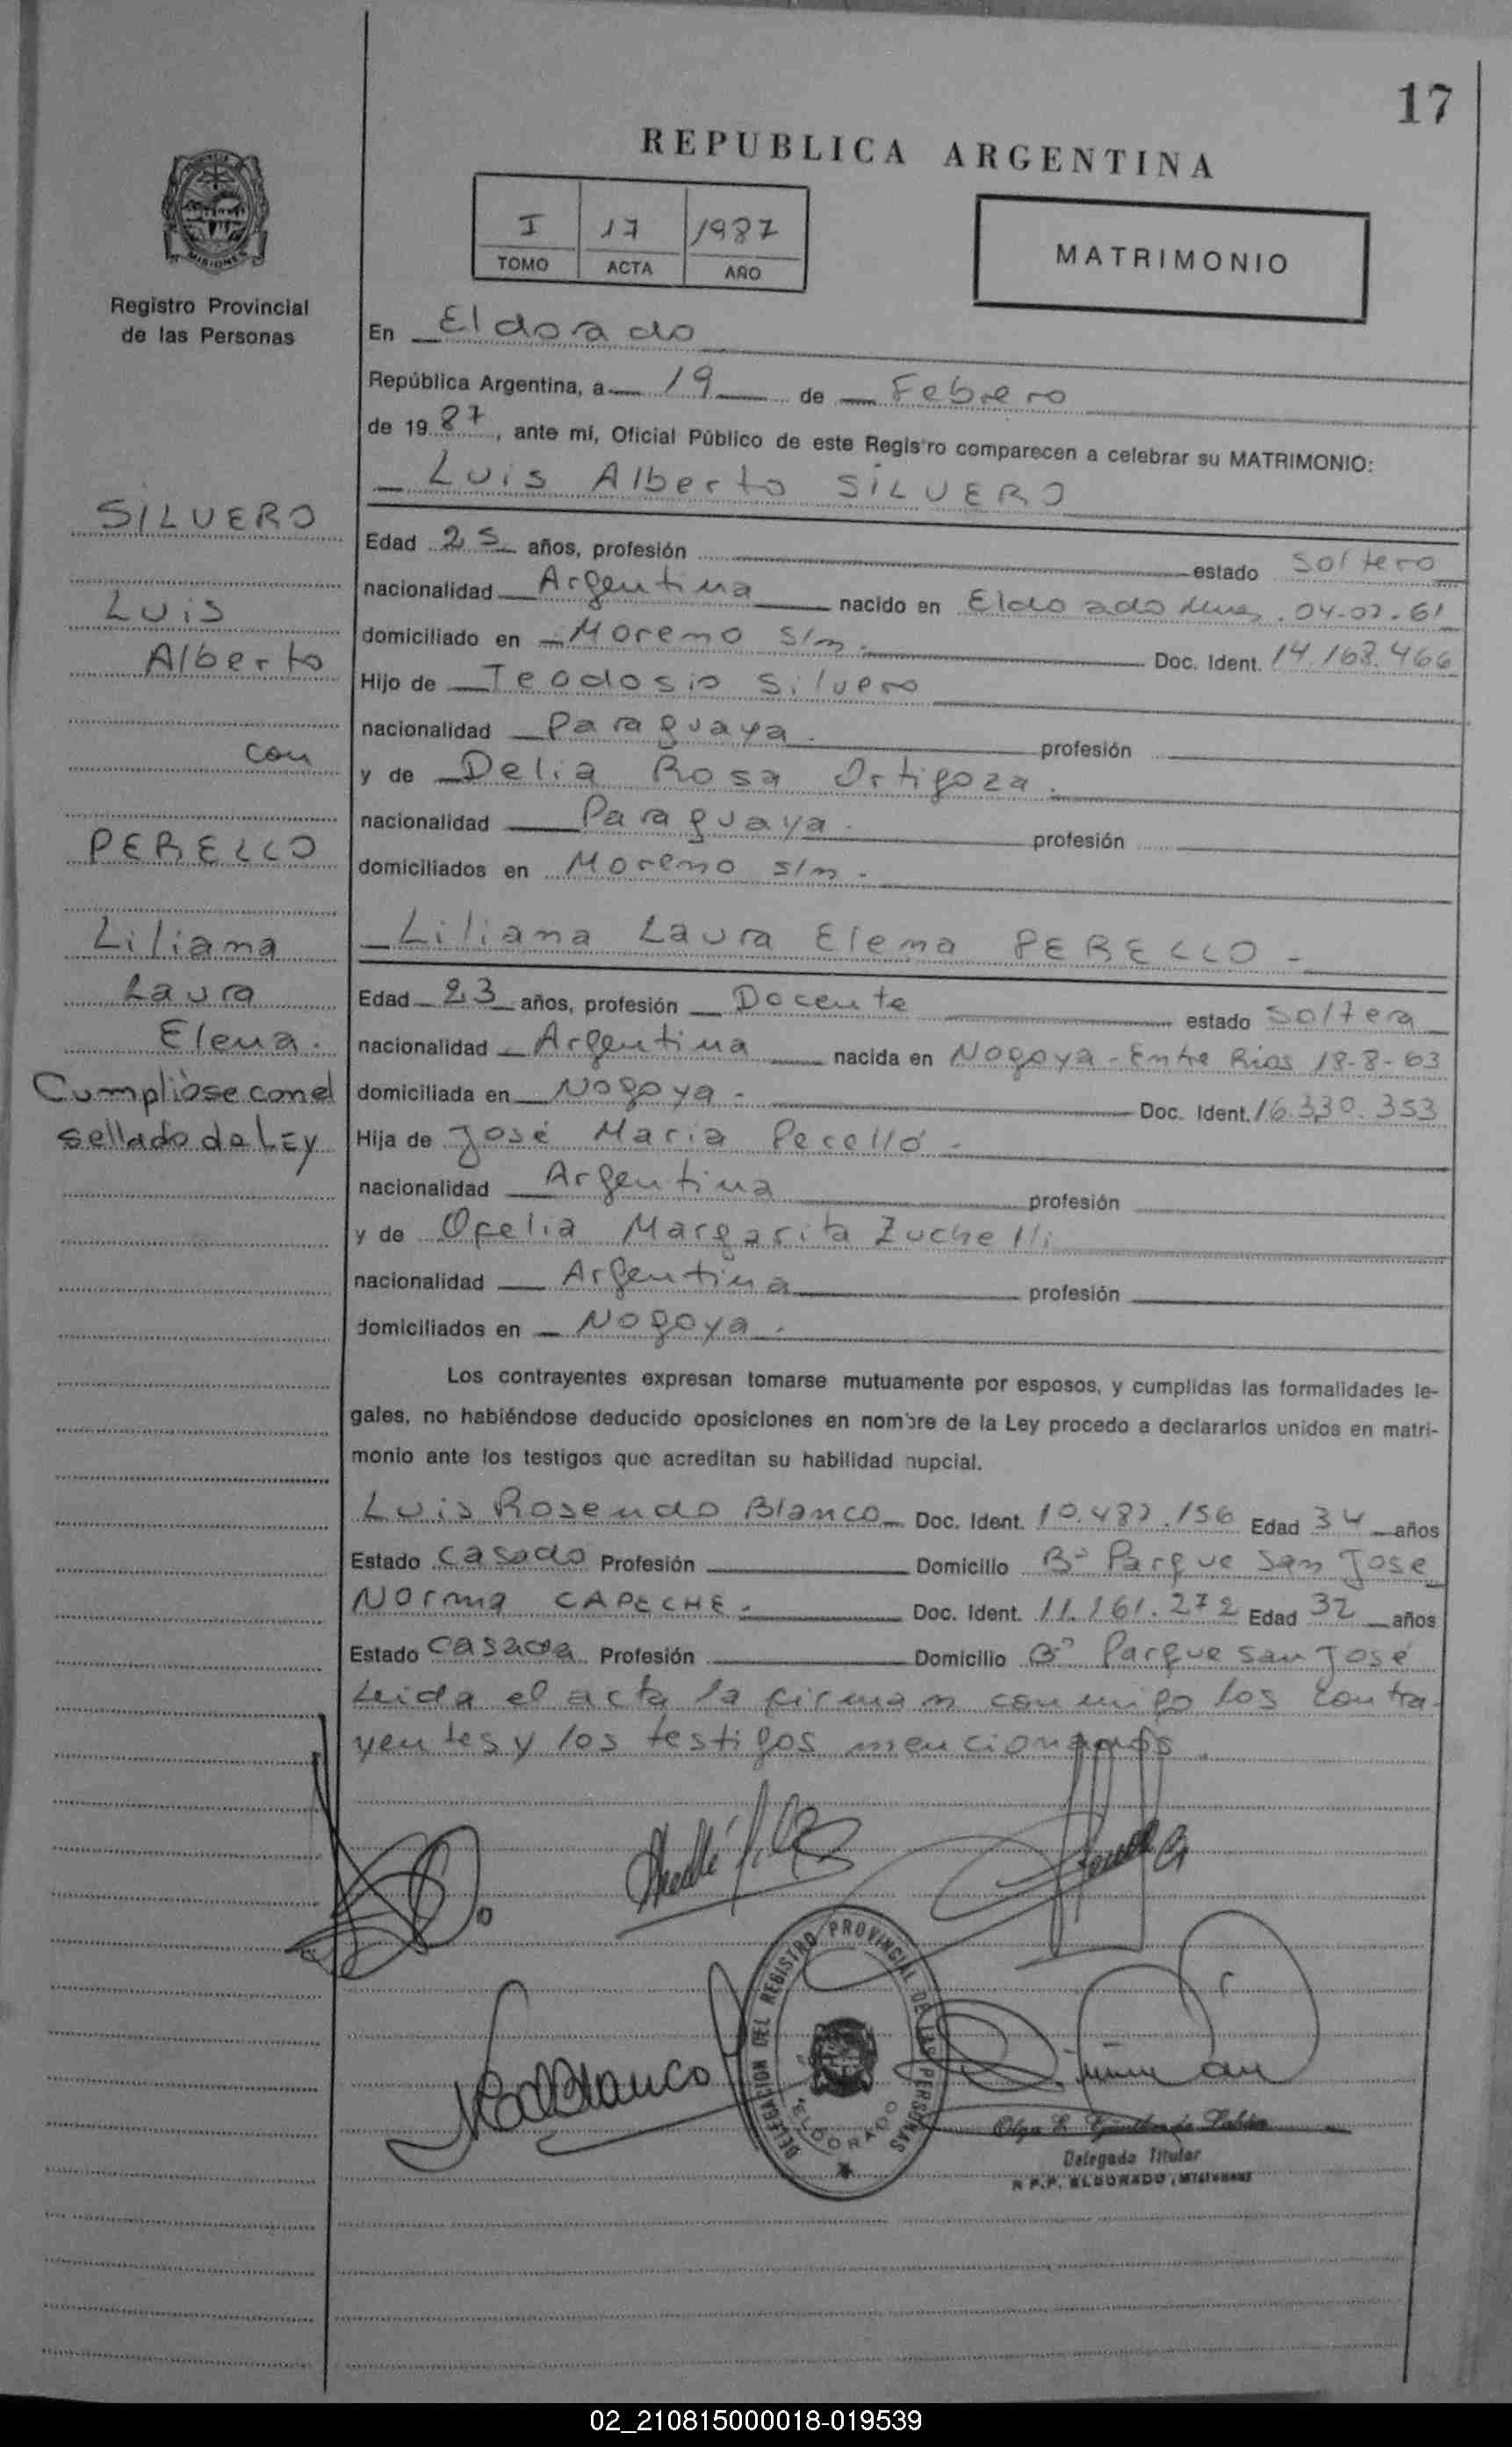 17
REPUBLICA ARGENTINA
I 17 1987
TOMO ACTA AÑO
MATRIMONIO
MISIONES
Registro Provincial
de las Personas
En Eldorado
República Argentina, a 19 de Febrero
de 1987, ante mí, Oficial Público de este Registro comparecen a celebrar su MATRIMONIO:
Luis Alberto SILVERO
SILVERO
Luis
Alberto
con
PERELLO
Liliana
Laura
Elena.
Cumplióse con el
sellado de LEy
Edad 25 años, profesión estado Soltero
nacionalidad Argentina nacido en Eldorado 04-07-61
domiciliado en Moreno s/n. Doc. Ident. 14.168.466
Hijo de Teodosio Silvero
nacionalidad Paraguaya. profesión
y de Delia Rosa Ortigoza.
nacionalidad Paraguaya. profesión
domiciliados en Moreno s/n.
Liliana Laura Elena PERELLO -
Edad 23 años, profesión Docente estado Soltera
nacionalidad Argentina nacida en Nogoya - Entre Rios 18-8-63
domiciliada en Nogoya - Doc. Ident. 16.330.353
Hija de José Maria Perelló -
nacionalidad Argentina profesión
y de Ofelia Margarita Zuchelli
nacionalidad Argentina profesión
domiciliados en Nogoya.
Los contrayentes expresan tomarse mutuamente por esposos, y cumplidas las formalidades le-
gales, no habiéndose deducido oposiciones en nombre de la Ley procedo a declararlos unidos en matri-
monio ante los testigos que acreditan su habilidad nupcial.
Luis Rosendo Blanco Doc. Ident. 10.487.156 Edad 34 años
Estado Casado Profesión Domicilio Bº Parque San Jose
Norma CAPECHE. Doc. Ident. 11.161.272 Edad 32 años
Estado Casada Profesión Domicilio Bº Parque San José
Leida el acta la firman conmigo los contra-
yentes y los testigos mencionados.
DELEGACION DEL REGISTRO PROVINCIAL DE LAS PERSONAS
ELDORADO
Delegada Titular
R.P.P. ELDORADO, MISIONES
02_210815000018-019539